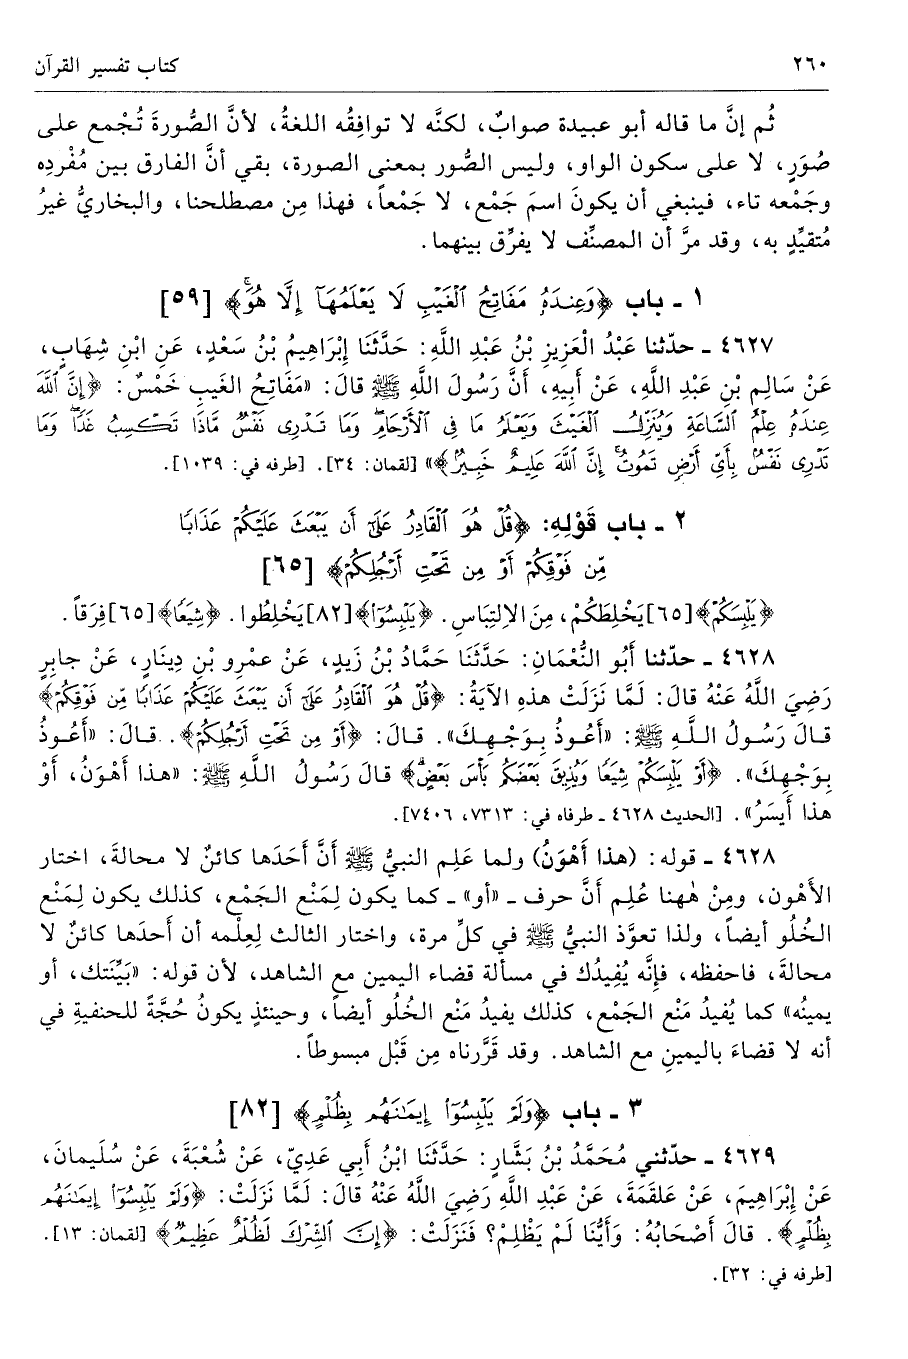 ٢٦٠ كتاب تفسير القرآن
ثُم إنَّ ما قاله أبو عبيدة صوابٌ، لكنَّه لا توافِقُه اللغةُ، لأنَّ الصُّورةَ تُجْمع على
صُوَرٍ، لا على سكون الواو، وليس الصُّور بمعنى الصورة، بقي أنَّ الفارق بين مُفْرَدِه
وجَمْعه تاء، فينبغي أن يكونَ اسمَ جَمْع، لا جَمْعاً، فهذا مِن مصطلحنا، والبخاريُّ غيرُ
مُتقيِّدٍ به، وقد مرَّ أن المصنِّف لا يفرِّق بينهما.
١ - باب ﴿وَعِندَهُۥ مَفَاتِحُ ٱلْغَيْبِ لَا يَعْلَمُهَآ إِلَّا هُوَۚ﴾ [٥٩]
٤٦٢٧ - حدّثنا عَبْدُ الْعَزِيزِ بْنُ عَبْدِ اللَّهِ: حَدَّثَنَا إِبْرَاهِيمُ بْنُ سَعْدٍ، عَنِ ابْنِ شِهَابٍ،
عَنْ سَالِمِ بْنِ عَبْدِ اللَّهِ، عَنْ أَبِيهِ، أَنَّ رَسُولَ اللَّهِ ﷺ قالَ: «مَفَاتِحُ الغَيبِ خَمْسٌ: ﴿إِنَّ ٱللَّهَ
عِندَهُۥ عِلْمُ ٱلسَّاعَةِ وَيُنَزِّلُ ٱلْغَيْثَ وَيَعْلَمُ مَا فِى ٱلْأَرْحَامِۖ وَمَا تَدْرِى نَفْسٌ مَّاذَا تَكْسِبُ غَدًاۖ وَمَا
تَدْرِى نَفْسٌۢ بِأَىِّ أَرْضٍ تَمُوتُۚ إِنَّ ٱللَّهَ عَلِيمٌ خَبِيرٌۢ﴾» [لقمان: ٣٤]. [طرفه في: ١٠٣٩].
٢ - باب قَوْلِهِ: ﴿قُلْ هُوَ ٱلْقَادِرُ عَلَىٰٓ أَن يَبْعَثَ عَلَيْكُمْ عَذَابًا
مِّن فَوْقِكُمْ أَوْ مِن تَحْتِ أَرْجُلِكُمْ﴾ [٦٥]
﴿يَلْبِسَكُمْ﴾[٦٥]يَخْلِطَكُمْ، مِنَ الاِلتِبَاسِ. ﴿يَلْبِسُوٓا۟﴾[٨٢]يَخْلِطُوا. ﴿شِيَعًا﴾[٦٥]فِرَقاً.
٤٦٢٨ - حدّثنا أَبُو النُّعْمَانِ: حَدَّثَنَا حَمَّادُ بْنُ زَيدٍ، عَنْ عمْرِو بْنِ دِينَارٍ، عَنْ جابِرٍ
رَضِيَ اللَّهُ عَنْهُ قالَ: لَمَّا نَزَلَتْ هذهِ الآيَةُ: ﴿قُلْ هُوَ ٱلْقَادِرُ عَلَىٰٓ أَن يَبْعَثَ عَلَيْكُمْ عَذَابًا مِّن فَوْقِكُمْ﴾
قـالَ رَسُـولُ الـلَّـهِ ﷺ: «أَعُـوذُ بِـوَجْـهِـكَ». قـالَ: ﴿أَوْ مِن تَحْتِ أَرْجُلِكُمْ﴾. قـالَ: «أَعُـوذُ
بِوَجْهِكَ». ﴿أَوْ يَلْبِسَكُمْ شِيَعًا وَيُذِيقَ بَعْضَكُم بَأْسَ بَعْضٍۗ﴾ قالَ رَسُولُ اللَّهِ ﷺ: «هذا أَهْوَنُ، أَوْ
هذا أَيسَرُ». [الحديث ٤٦٢٨ - طرفاه في: ٧٣١٣، ٧٤٠٦].
٤٦٢٨ - قوله: (هذا أَهْوَنُ) ولما عَلِم النبيُّ ﷺ أنَّ أَحَدَها كائنٌ لا محالةَ، اختار
الأهْون، ومِنْ هٰهنا عُلِم أنَّ حرف - «أو» - كما يكون لِمَنْع الجَمْع، كذلك يكون لِمَنْع
الخُلُو أيضاً، ولذا تعوَّذ النبيُّ ﷺ في كلِّ مرة، واختار الثالث لِعِلْمه أن أحدَها كائنٌ لا
محالةَ، فاحفظه، فإنَّه يُفِيدُك في مسألة قضاء اليمين مع الشاهد، لأن قوله: «بَيِّنَتك، أو
يمينُه» كما يُفيدُ مَنْع الجَمْع، كذلك يفيدُ مَنْع الخُلُو أيضاً، وحينئذٍ يكونُ حُجَّةً للحنفيةِ في
أنه لا قضاءَ باليمينِ مع الشاهد. وقد قَرَّرناه مِن قَبْل مبسوطاً.
٣ - باب ﴿وَلَمْ يَلْبِسُوٓا۟ إِيمَـٰنَهُم بِظُلْمٍ﴾ [٨٢]
٤٦٢٩ - حدّثني مُحَمَّدُ بْنُ بَشَّارٍ: حَدَّثَنَا ابْنُ أَبِي عَدِيّ، عَنْ شُعْبَةَ، عَنْ سُلَيمانَ،
عَنْ إِبْرَاهِيمَ، عَنْ عَلقَمَةَ، عَنْ عَبْدِ اللَّهِ رَضِيَ اللَّهُ عَنْهُ قالَ: لَمَّا نَزَلَتْ: ﴿وَلَمْ يَلْبِسُوٓا۟ إِيمَـٰنَهُم
بِظُلْمٍ﴾. قالَ أَصْحَابُهُ: وَأَيُّنَا لَمْ يَظْلِمْ؟ فَنَزَلَتْ: ﴿إِنَّ ٱلشِّرْكَ لَظُلْمٌ عَظِيمٌ﴾ [لقمان: ١٣].
[طرفه في: ٣٢].